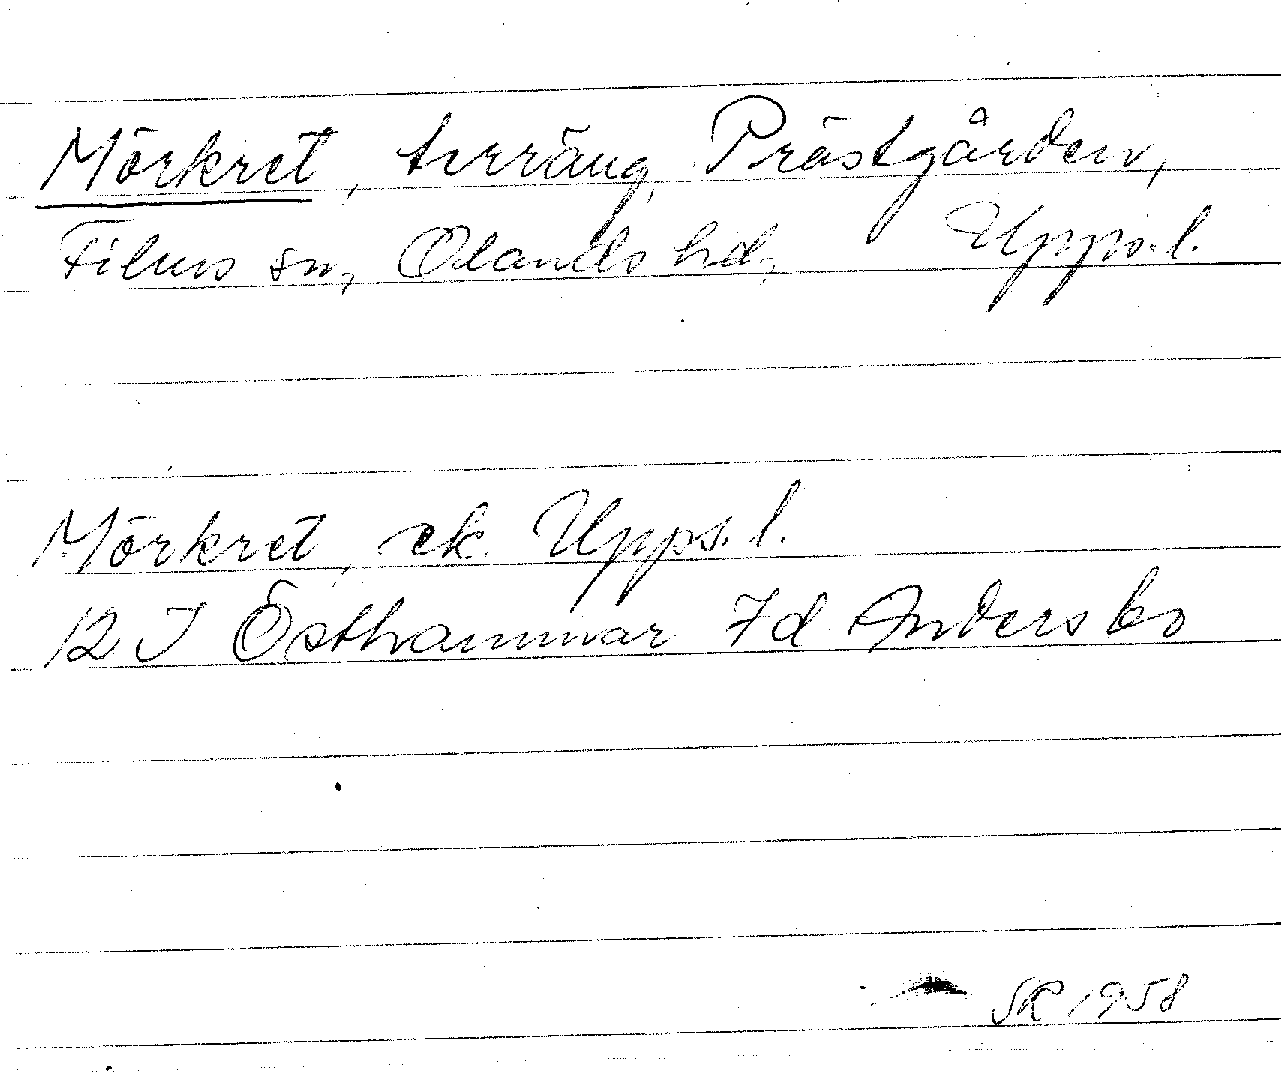 Mörkret, terräng Prästgården,
Films sn, Olands hd, Upps.l.
Mörkret, ek. Upps.l.
12 I Östhammar 7d Andersbo
SR 1958